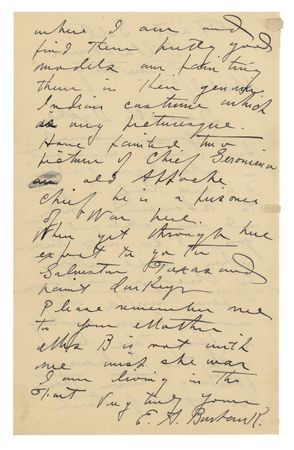 where I am and
find them pretty good
models am painting
them in their genuine
Indian costume which
is very picturesque.
Have painted two
picture of Chief Geronimo
an old Appache
chief he is a prisoner
of War here.
When get through here
expect to go to
Galveston Texas and
paint darkeys
Please remember me
to your Mother
Mrs B is not with
me wish she was
I am living in the
Fort Very truly yours
E. A. Burbank.